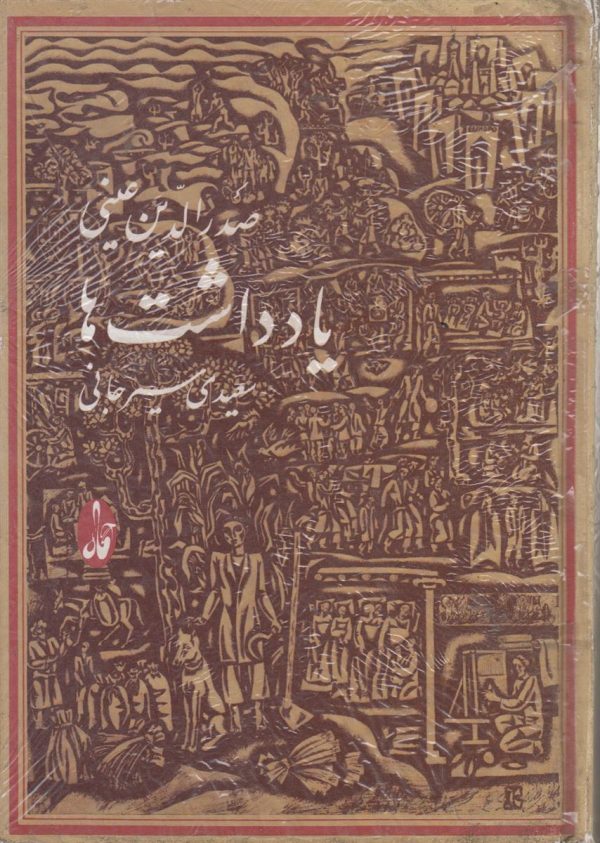 صدرالدّین عینی
یادداشت‌ها
سعیدی سیرجانی
آگاه